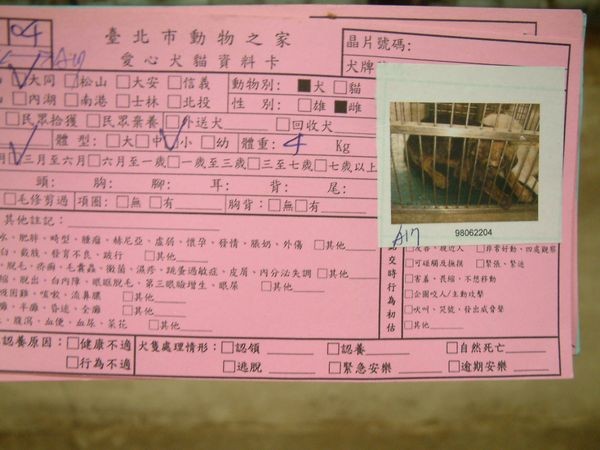 04
臺北市動物之家
晶片號碼:
愛心犬貓資料卡
犬牌
A17
大同 □松山 □大安 □信義 動物別: ■犬 □貓
□內湖 □南港 □士林 □北投 性 別: □雄 ■雌
□民眾拾獲 □民眾棄養 □外送犬 □回收犬
體 型: □大 □中 □小 □幼 體重: 4 Kg
月 □三月至六月 □六月至一歲 □一歲至三歲 □三至七歲 □七歲以上
頭: 胸: 腳: 耳: 背: 尾:
□毛修剪過 項圈: □無 □有 胸背: □無 □有
98062204
A17
其他註記:
水、肥胖、畸形、腫瘤、赫尼亞、虛弱、懷孕、發情、脹奶、外傷 □其他
白、截肢、發育不良、跛行 □其他
、脫毛、疥癬、毛囊蟲、黴菌、濕疹、跳蚤過敏症、皮屑、內分泌失調 □其他
縮、脫出、白內障、眼瞼脫毛、第三眼瞼增生、眼屎 □其他
吸困難、咳嗽、流鼻膿 □其他
癱、半癱、昏迷、全癱 □其他
、腹瀉、血便、血尿、菜花 □其他
交時行為初估
□友善、親近人 □非常好動、四處觀察
□可碰觸及撫摸 □緊張、緊迫
□害羞、畏縮、不想移動
□企圖咬人/主動攻擊
□吠叫、哭號、發出威脅聲
□其他
認養原因: □健康不適 犬隻處理情形: □認領 □認養 □自然死亡
□行為不適 □逃脫 □緊急安樂 □逾期安樂